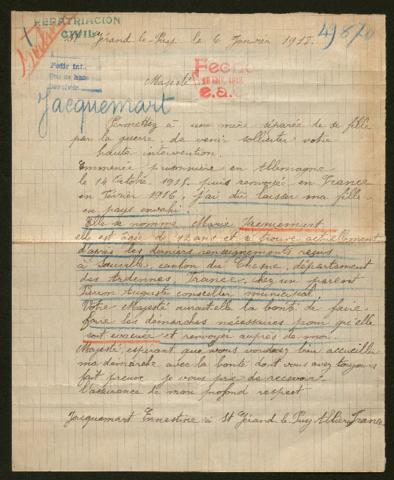 REPATRIATION
CIVIL
4) 870
St Gérand-le-Puy le 6 Janvier 1917.
Majesté
Jacquemart
Permettez à une mère séparée de sa fille
par la guerre, de venir solliciter votre
haute intervention.
Emmenée prisonnière en Allemagne
le 14 Octobre 1915, puis renvoyée en France
en Février 1916, j'ai dû laisser ma fille
en pays envahi.
Elle se nomme Marie Jacquemart
elle est âgée de 12 ans et se trouve actuellement
d'après les derniers renseignements reçus
à Sauville, canton du Chesne, département
des Ardennes, France, chez un parent
Pierson Auguste conseiller municipal.
Votre Majesté aurait-elle la bonté de faire
faire les démarches nécessaires pour qu'elle
soit évacuée et renvoyée auprès de moi.
Majesté, espérant que vous voudrez bien accueillir
ma démarche avec la bonté dont vous avez toujours
fait preuve je vous prie de recevoir
l'assurance de mon profond respect
Jacquemart Ernestine à St Gérand le Puy Allier France